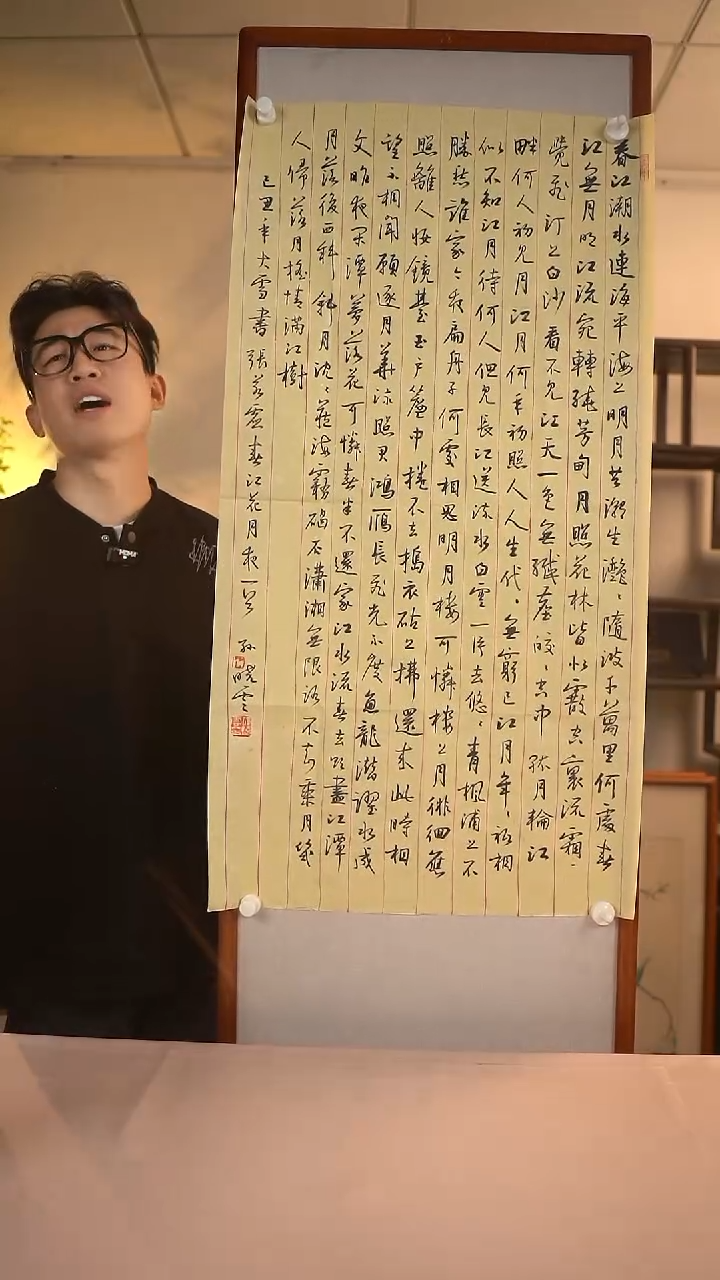 春江潮水連海平海上明月共潮生灩〻隨波千萬里何處春
江無月明江流宛轉遶芳甸月照花林皆似霰空裏流霜不
覺飛汀上白沙看不見江天一色無纖塵皎〻空中孤月輪江
畔何人初見月江月何年初照人人生代〻無窮已江月年〻祇相
似不知江月待何人但見長江送流水白雲一片去悠〻青楓浦上不
勝愁誰家今夜扁舟子何處相思明月樓可憐樓上月徘徊應
照離人妝鏡臺玉戶簾中捲不去搗衣砧上拂還來此時相
望不相聞願逐月華流照君鴻雁長飛光不度魚龍潛躍水成
文昨夜閑潭夢落花可憐春半不還家江水流春去欲盡江潭
月落復西斜斜月沈〻藏海霧碣石瀟湘無限路不知乘月幾
人歸落月搖情滿江樹
己丑年大雪書張若虛春江花月夜一首 孫曉雲